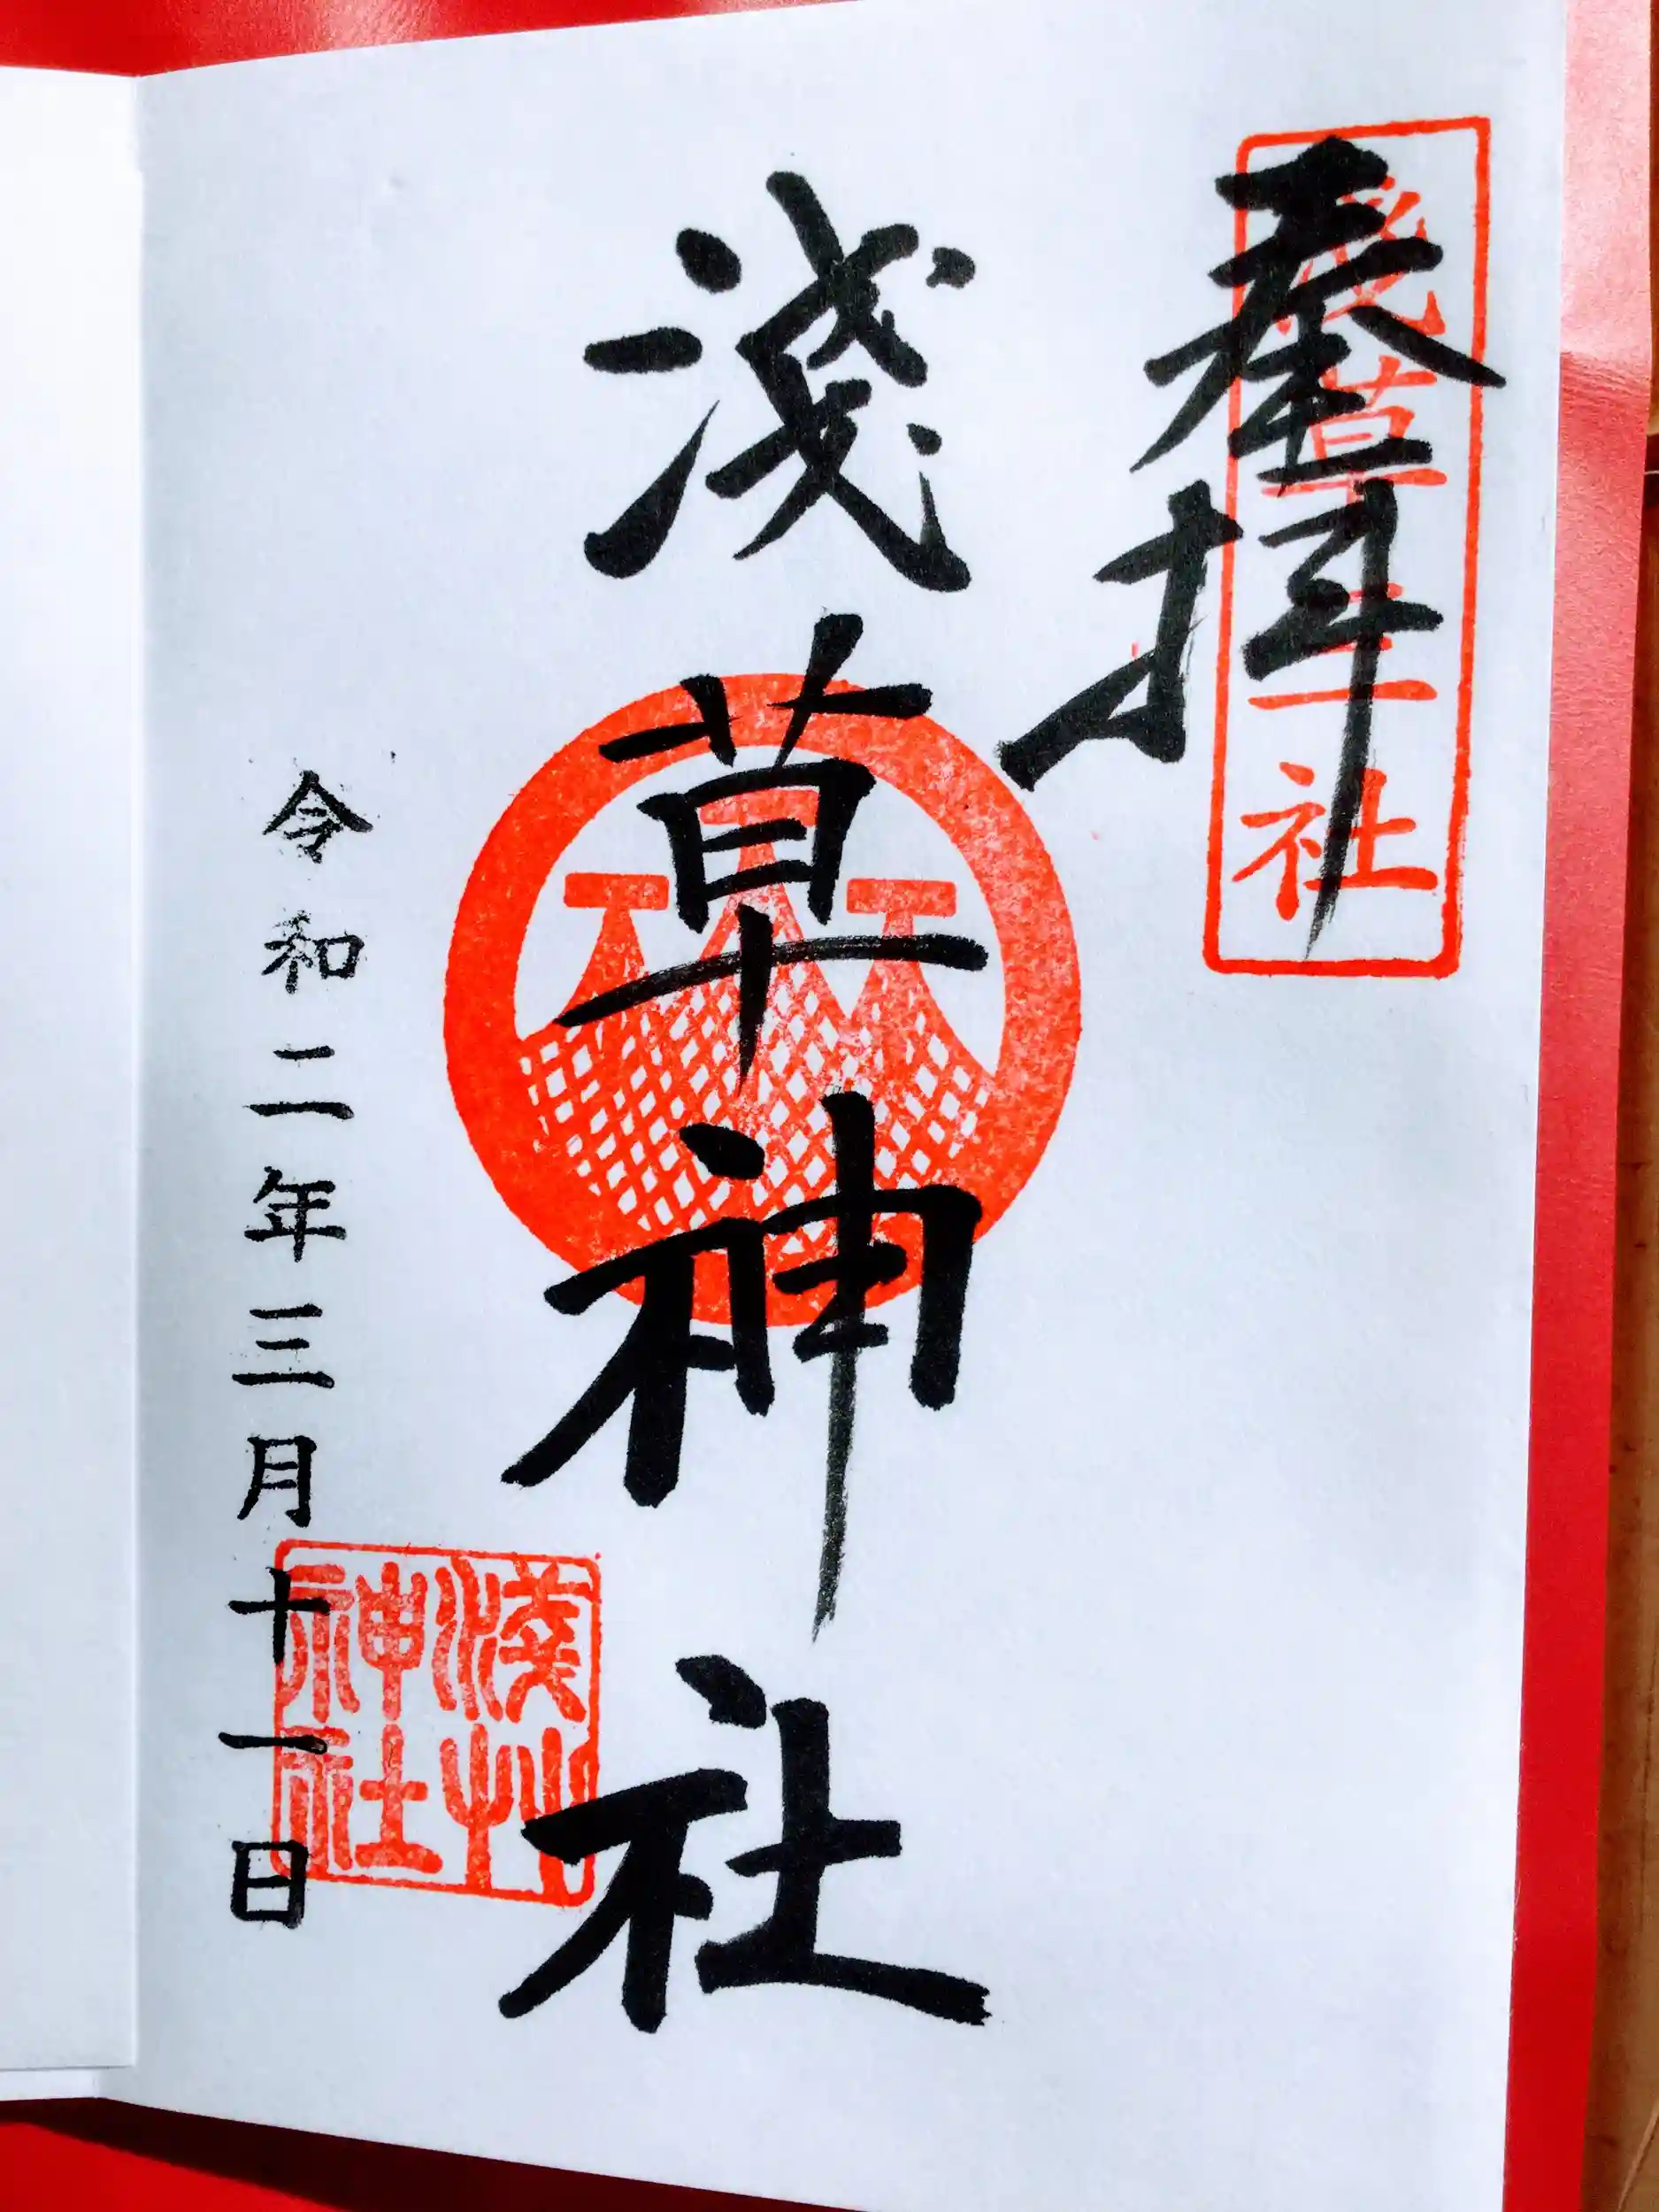 奉拝
浅草三社
淺草神社
淺艸神社
令和二年三月十一日